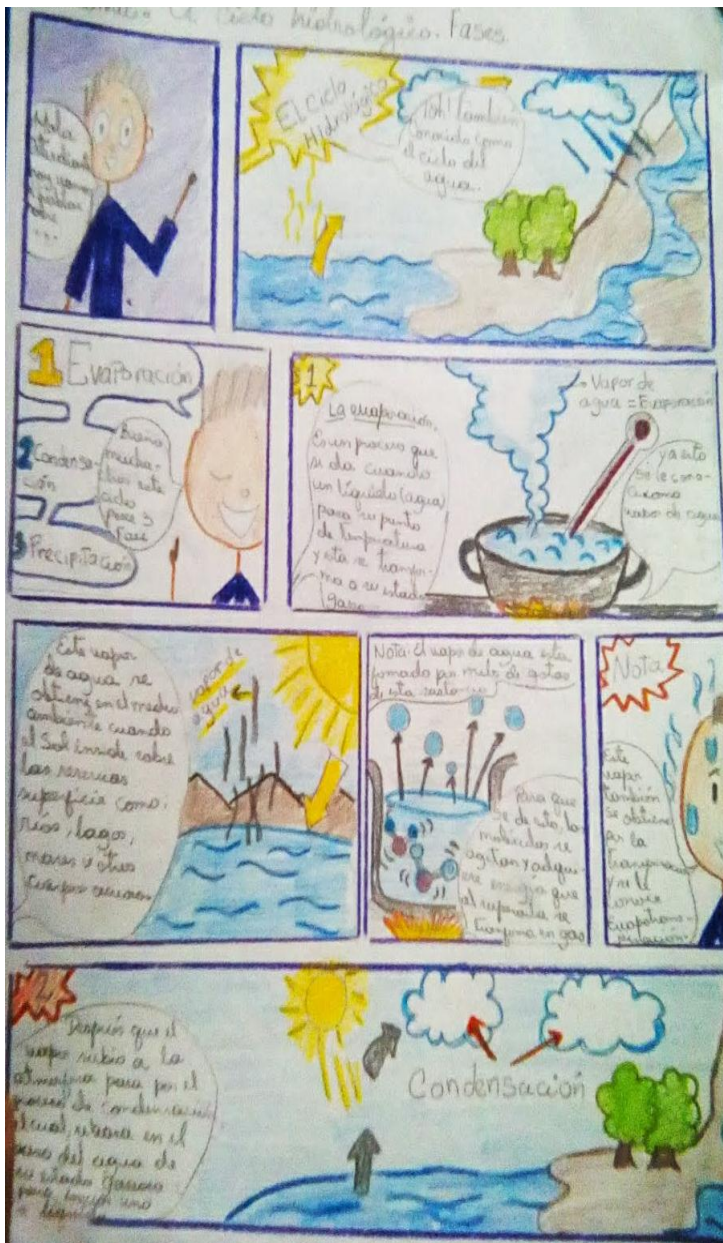 El ciclo hidrológico. Fases
Hola
hoy vamos
a hablar
sobre
...
El ciclo
Hidrológico
¡oh! también
conocido como
el ciclo del
agua..
1 Evaporación
2 Condensa-
ción
3 Precipitación
Bueno
mucha-
chos este
ciclo
posee 3
Fase
1
La evaporación.
Es un proceso que
se da cuando
un líquido (agua)
pasa su punto
de temperatura
y esta se transfor-
ma a su estado
gase
Vapor de
agua = Evaporación
ya esto
se le cono-
ce como
vapor de agua
Este vapor
de agua se
obtiene en el medio
ambiente cuando
el Sol incide sobre
las reservas
superficie como:
ríos, lagos,
mares u otros
cuerpos
vapor de
agua
Nota: El vapor de agua esta
formado por miles de gotas
de esta sustancia
Para que
se de esto, las
moléculas se
agitan y adquie-
ren energía que
al superarla se
transforma en gas
Nota
Este
vapor
también
se obtiene
por la
transpiración
y se le
conoce
evapotrans-
piración.
2
Después que el
vapor subio a la
atmosfera pasa por el
proceso de condensación
el cual, en el
paso del agua de
su estado gaseoso
para uno
Condensación